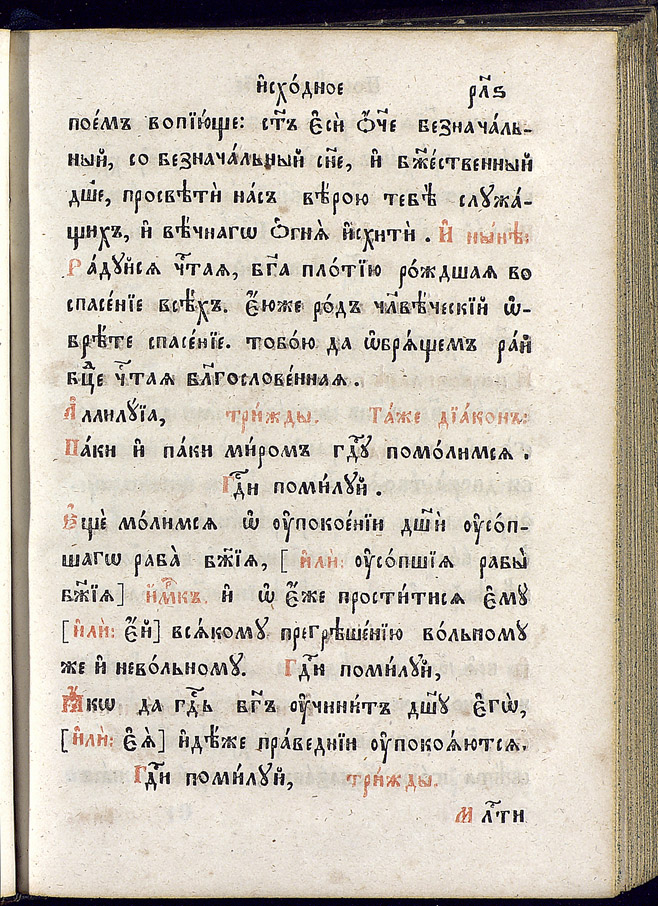 и҆схо́дное рл҃ѕ
пое́мъ вопїю́ще: ст҃ъ є҆сѝ ѻ҆́ч҃е безнача́ль-
ный, со безнача́льный сн҃е, и҆ бж҃е́ственный
дш҃е, просвѣтѝ на́съ вѣ́рою тебѣ̀ слꙋжа́-
щихъ, и҆ вѣ́чнагѡ ѻ҆гнѧ̀ и҆схитѝ. И҆ ны́нѣ:
Ра́дꙋйсѧ чⷭ҇таѧ, бг҃а пло́тїю ро́ждшаѧ во
спасе́нїе всѣ́хъ. є҆́юже ро́дъ чл҃вѣ́ческїй ѡ҆-
брѣ́те спасе́нїе. тобо́ю да ѡ҆брѧ́щемъ ра́й
бцⷣе чⷭ҇таѧ бл҃гослове́ннаѧ.
А҆ллилꙋ́їа, три́жды. Та́же дїа́конъ:
Па́ки и҆ па́ки ми́ромъ гдⷭ҇ꙋ помо́лимсѧ.
Гдⷭ҇и поми́лꙋй.
Е҆щѐ мо́лимсѧ ѡ҆ ᲂу҆покое́нїи дш҃ѝ ᲂу҆со́п-
шагѡ раба̀ бж҃їѧ, [и҆лѝ: ᲂу҆со́пшїѧ рабы̀
бж҃їѧ] и҆́м̾ⷬ҇къ. и҆ ѡ҆ є҆́же прости́тисѧ є҆мꙋ̀
[и҆лѝ: є҆́й] всѧ́комꙋ прегрѣше́нїю во́льномꙋ
же и҆ нево́льномꙋ. Гдⷭ҇и поми́лꙋй,
Ꙗ҆́кѡ да гдⷭ҇ь бг҃ъ ᲂу҆чини́тъ дш҃ꙋ є҆гѡ̀,
[и҆лѝ: є҆ѧ̀] и҆дѣ́же пра́веднїи ᲂу҆покоѧ́ютсѧ.
Гдⷭ҇и поми́лꙋй, три́жды.
Млⷭ҇ти